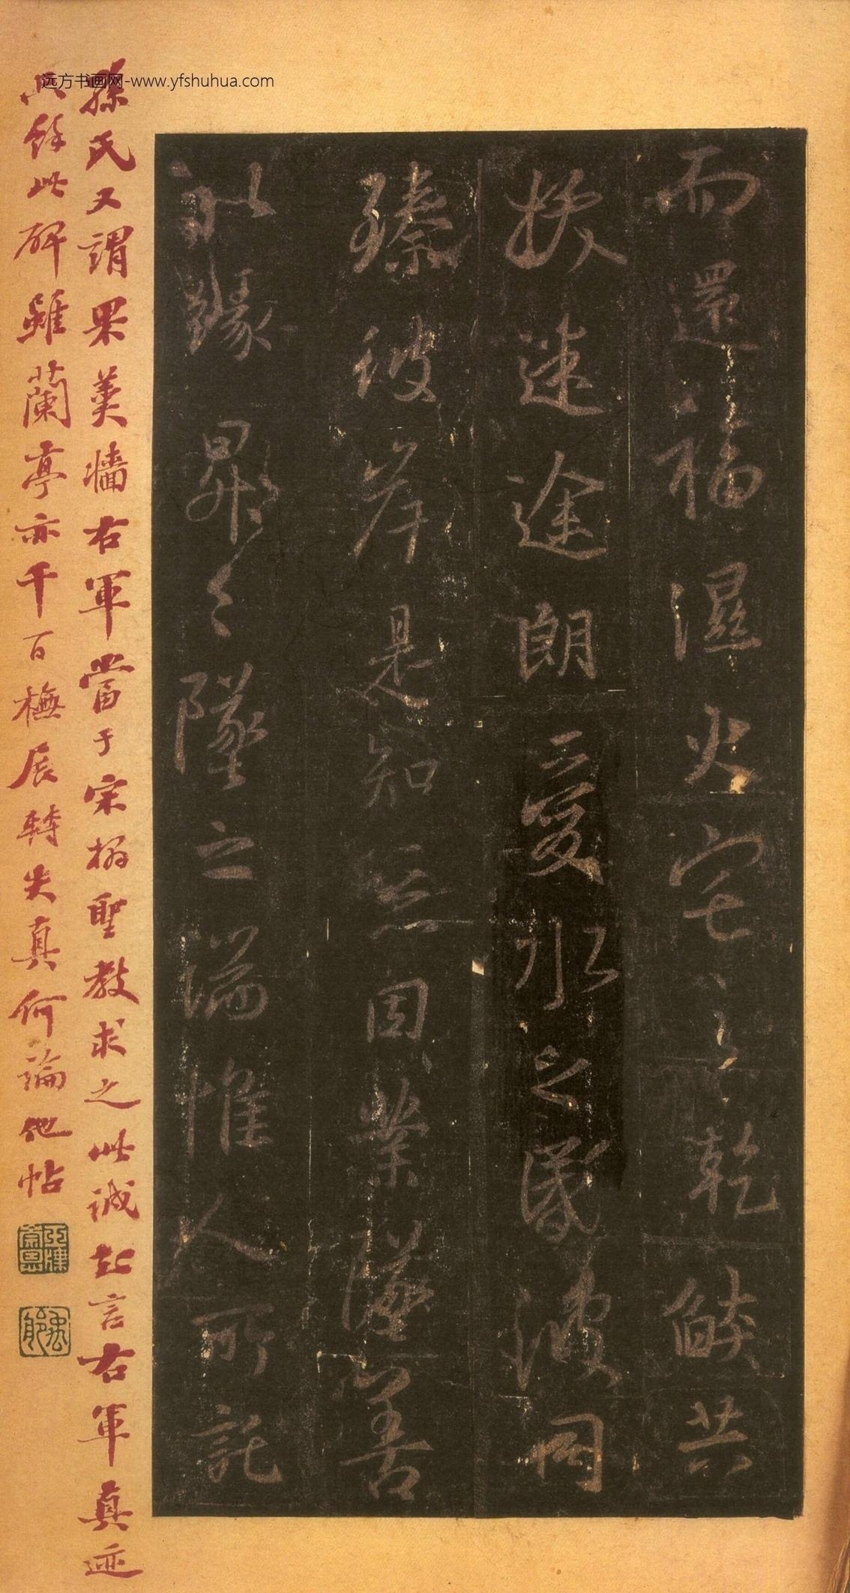 远方书画网-www.yfshuhua.com
而還福濕火宅之乾𦦨共
拔迷途朗愛水之昏波同
臻彼岸是知惡因業墜善
以緣昇昇墜之端惟人所託
孫氏又謂果羮牆右軍當于宋搨聖教求之此誠知言右軍真迹
以餘此碑雖蘭亭亦千百橅展轉失真何論他帖